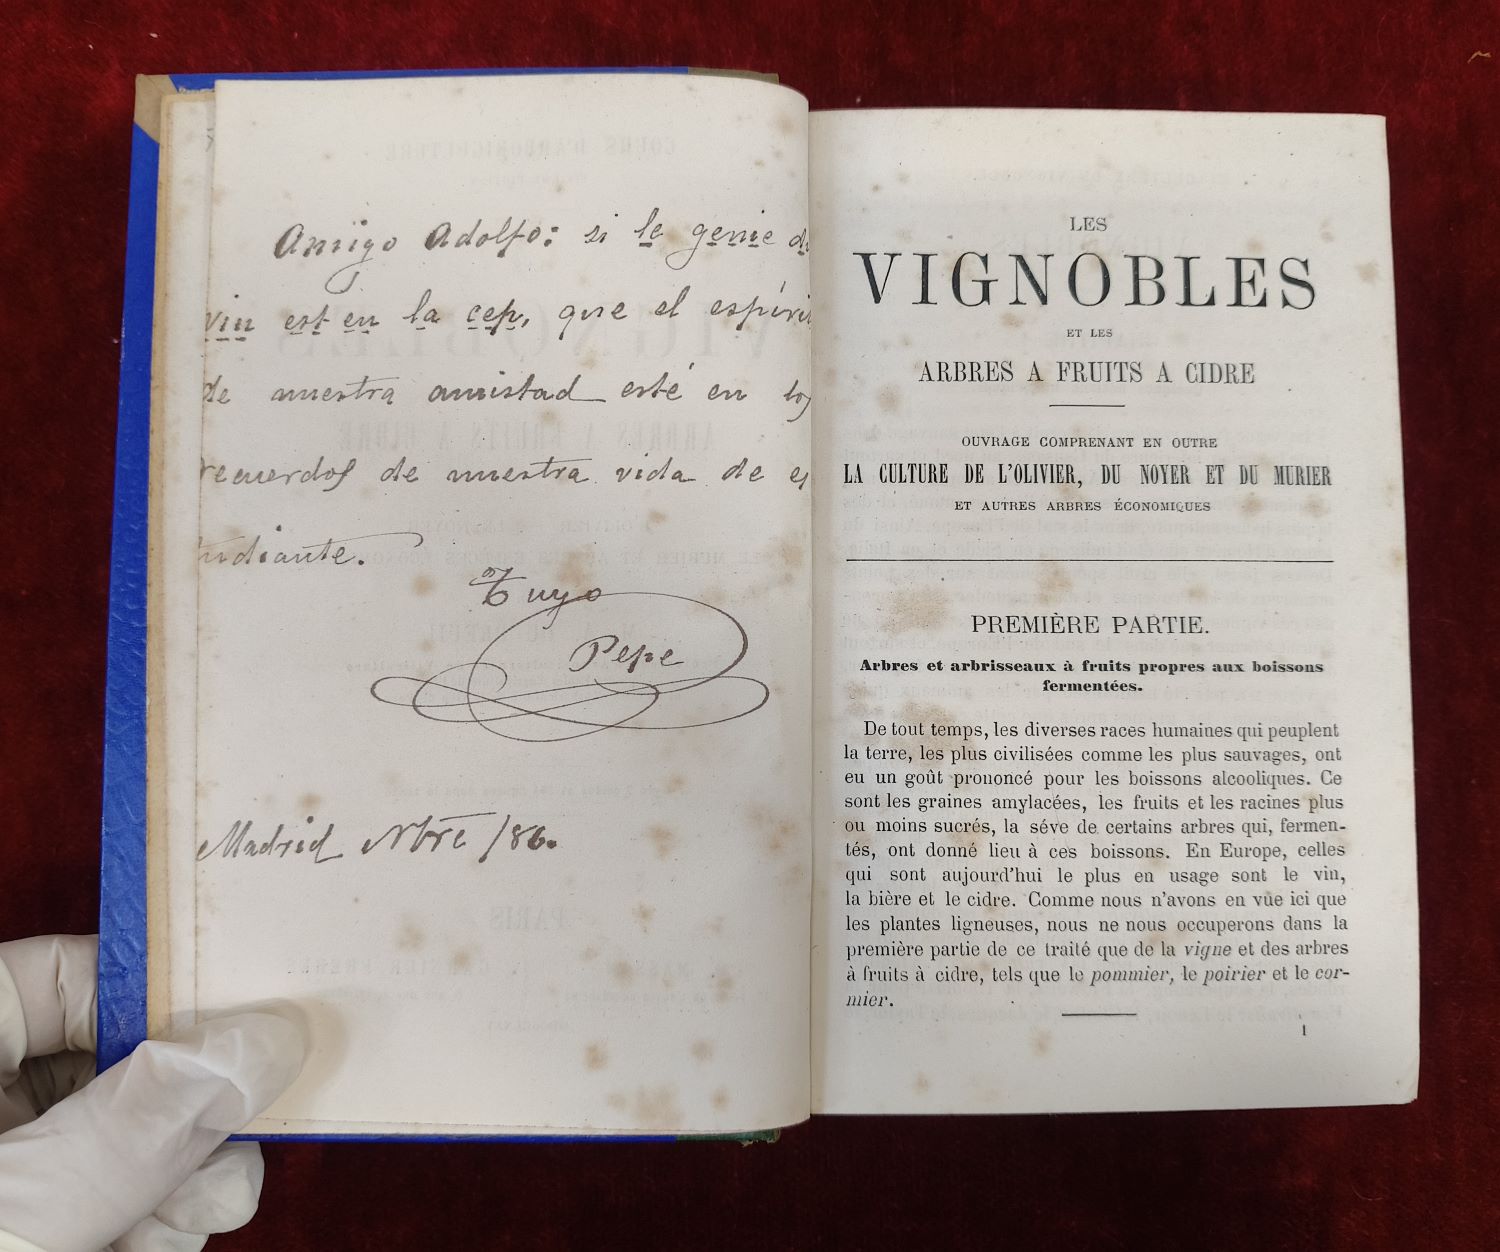 Amigo Adolfo: si le genie du
vin est en la cep, que el espíri
de nuestra amistad esté en los
recuerdos de nuestra vida de es
tudiante.
Tuyo
Pepe
Madrid Nbre /86.
LES
VIGNOBLES
ET LES
ARBRES A FRUITS A CIDRE
OUVRAGE COMPRENANT EN OUTRE
LA CULTURE DE L'OLIVIER, DU NOYER ET DU MURIER
ET AUTRES ARBRES ÉCONOMIQUES
PREMIÈRE PARTIE.
Arbres et arbrisseaux à fruits propres aux boissons
fermentées.
De tout temps, les diverses races humaines qui peuplent
la terre, les plus civilisées comme les plus sauvages, ont
eu un goût prononcé pour les boissons alcooliques. Ce
sont les graines amylacées, les fruits et les racines plus
ou moins sucrés, la séve de certains arbres qui, fermen-
tés, ont donné lieu à ces boissons. En Europe, celles
qui sont aujourd'hui le plus en usage sont le vin,
la bière et le cidre. Comme nous n'avons en vue ici que
les plantes ligneuses, nous ne nous occuperons dans la
première partie de ce traité que de la vigne et des arbres
à fruits à cidre, tels que le pommier, le poirier et le cor-
mier.
1